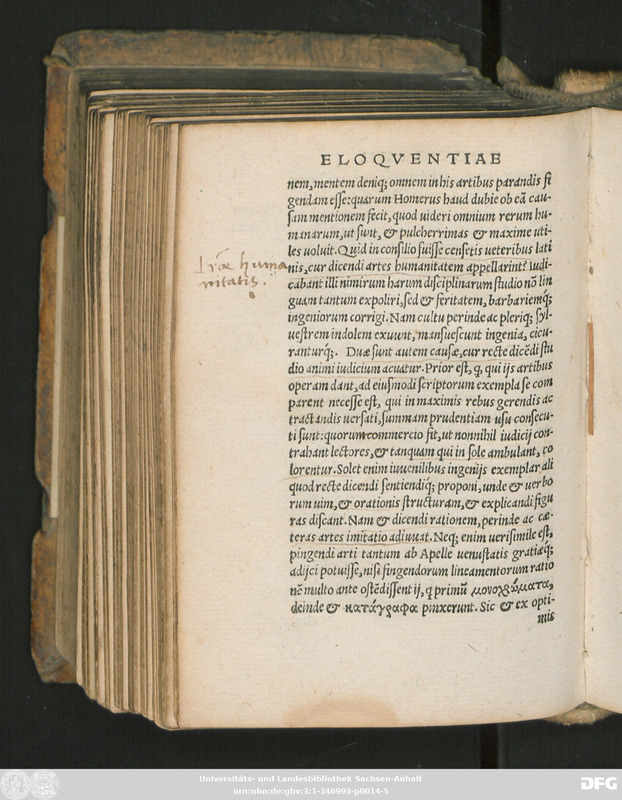 ELOQVENTIAE
nem, mentem deniq; omnem in his artibus parandis fi
gendam esse: quarum Homerus haud dubie ob eã cau-
sam mentionem fecit, quod uideri omnium rerum hu-
manarum, ut sunt, & pulcherrimas & maxime uti-
les uoluit. Quid in consilio fuisse censetis ueteribus lati
nis, cur dicendi artes humanitatem appellarint? iudi-
cabant illi nimirum harum disciplinarum studio nõ lin
guam tantum expoliri, sed & feritatem, barbariemq́;
ingeniorum corrigi. Nam cultu perinde ac pleriq; syl-
uestrem indolem exuunt, mansuescunt ingenia, cicu-
ranturq́;. Duæ sunt autem causæ, cur recte dicẽdi stu
dio animi iudicium acuatur. Prior est, q, qui ijs artibus
operam dant, ad eiusmodi scriptorum exempla se com
parent necesse est, qui in maximis rebus gerendis ac
tractandis uersati, summam prudentiam usu consecu-
ti sunt: quorum commercio fit, ut nonnihil iudicij con-
trahant lectores, & tanquam qui in sole ambulant, co
lorentur. Solet enim iuuenilibus ingenijs exemplar ali
quod recte dicendi sentiendiq́; proponi, unde & uerbo
rum uim, & orationis structuram, & explicandi figu
ras discant. Nam & dicendi rationem, perinde ac cæ-
teras artes imitatio adiuuat. Neq; enim uerisimile est,
pingendi arti tantum ab Apelle uenustatis gratiæq́;
adijci potuisse, nisi fingendorum lineamentorum ratio
nẽ multo ante ostẽdissent ij, q primũ μονοχρώματα,
deinde & κατάγραφα pinxerunt. Sic & ex opti-
mis
humanitatis.
Universitäts- und Landesbibliothek Sachsen-Anhalt
urn:nbn:de:gbv:3:1-346993-p0014-5
DFG